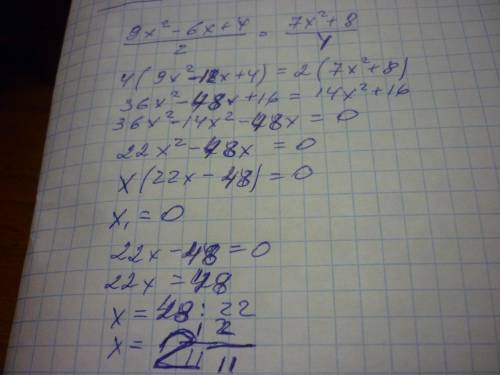 (9x² - 6x + 4)/2 = (7x² + 8)/4
4(9x² - 12x + 4) = 2(7x² + 8)
36x² - 48x + 16 = 14x² + 16
36x² - 14x² - 48x = 0
22x² - 48x = 0
x(22x - 48) = 0
x₁ = 0
22x - 48 = 0
22x = 48
x = 48 : 22
x = 2 2/11